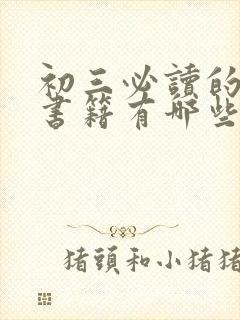 初三必讀的
書籍有哪些
猪頭和小猪猪